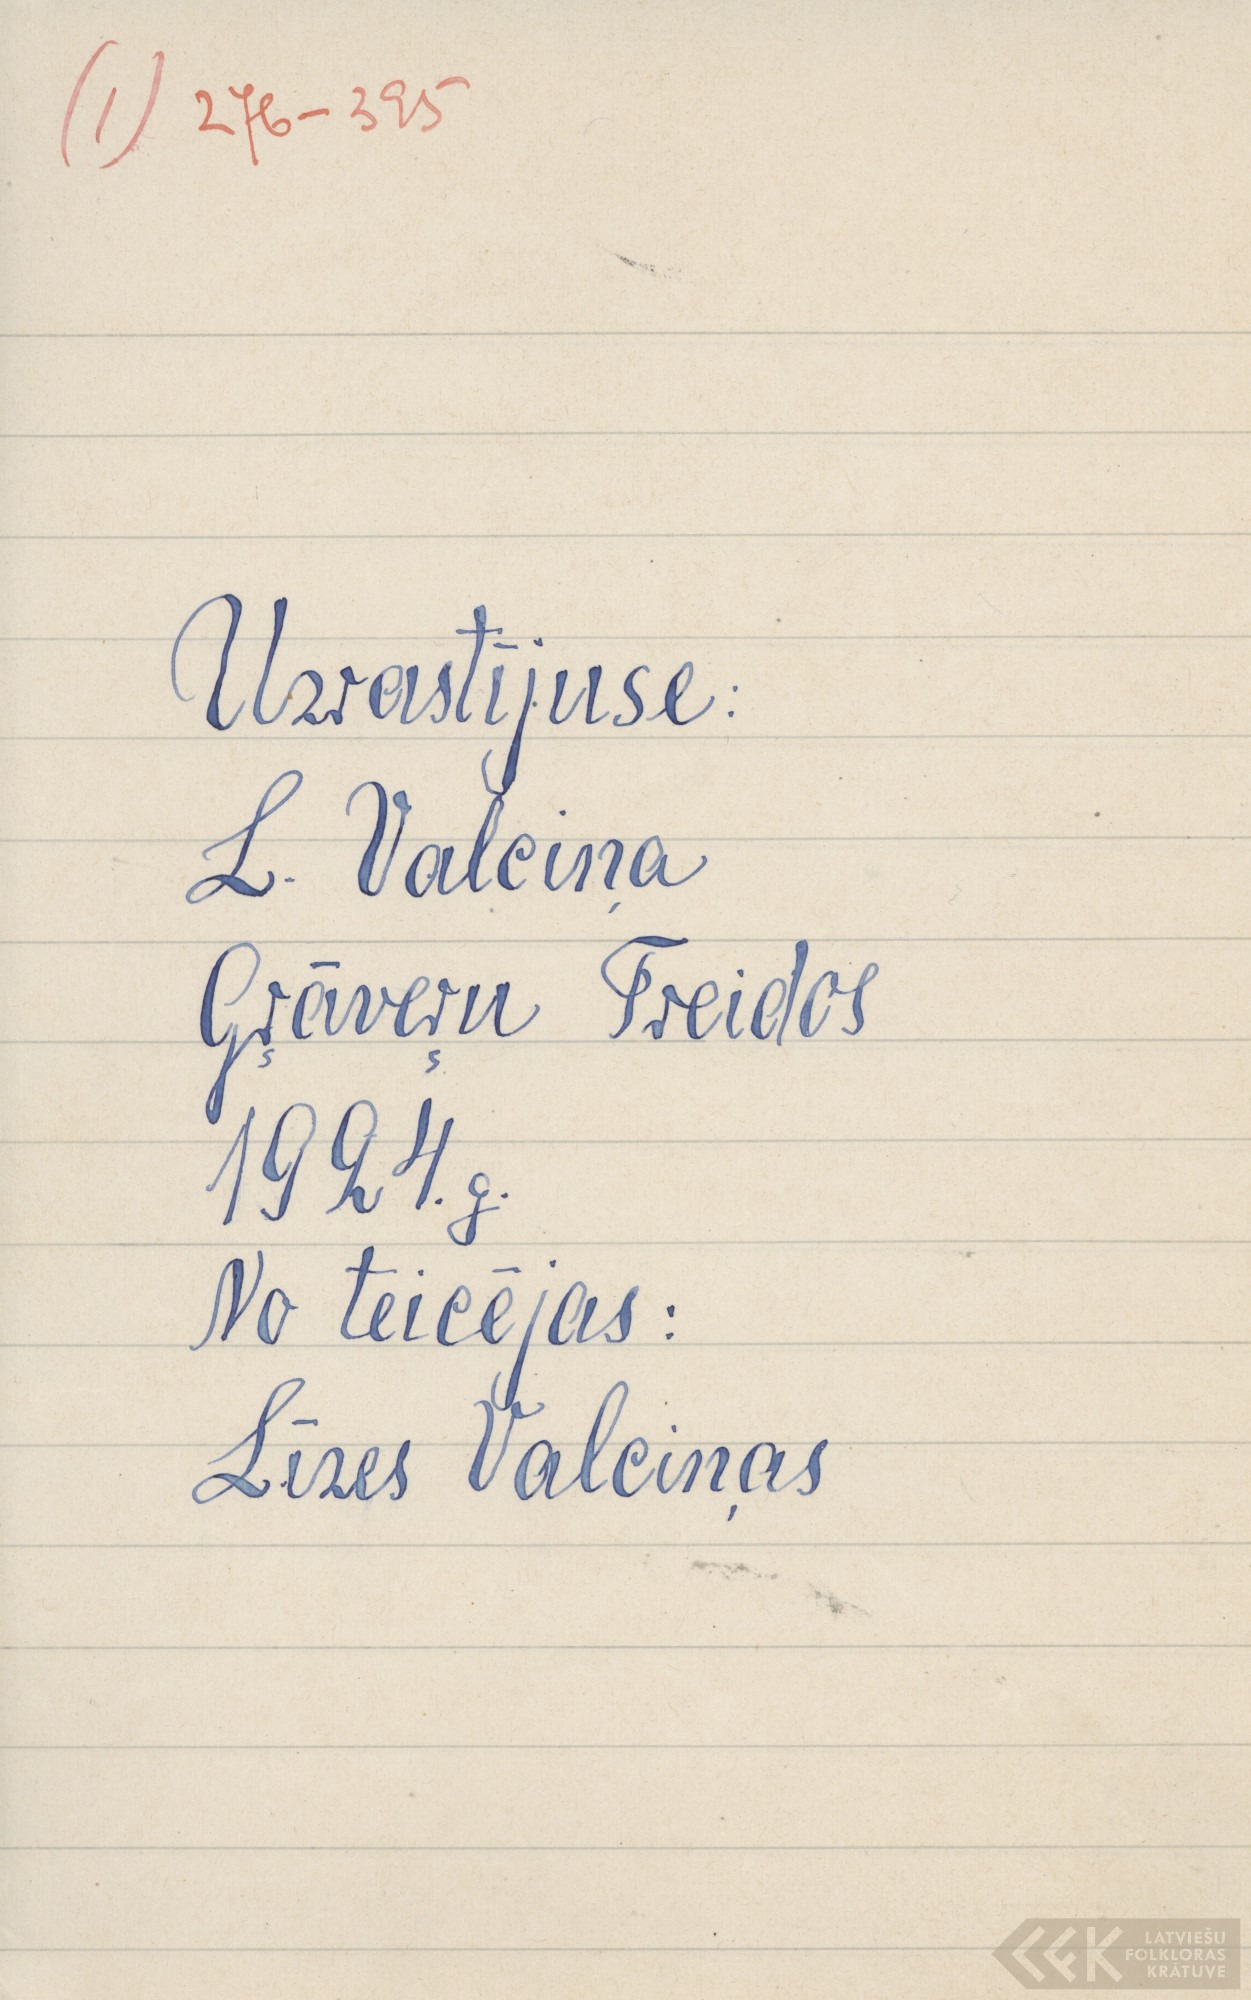 (1) 276-395
Uzrastījuse:
L. Valciņa
Gŗāveŗu Freidos
1924. g.
No teicējas:
Līzes Valciņas
LATVIEŠU
FOLKLORAS
KRĀTUVE